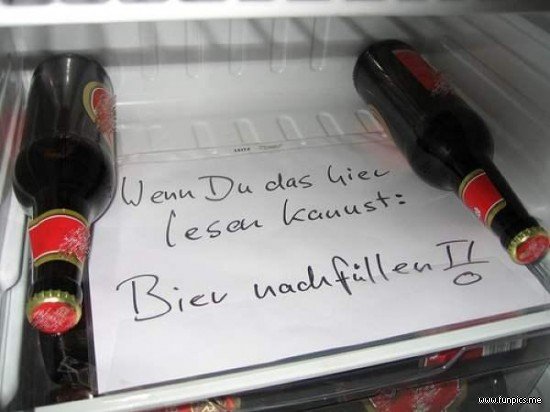 Wenn Du das hier
lesen kannst:
Bier nachfüllen!!
www.funpics.me